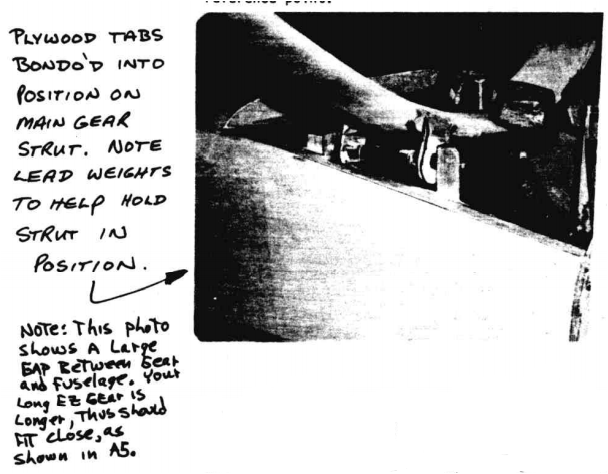 reference point.
PLYWOOD TABS
BONDO'D INTO
POSITION ON
MAIN GEAR
STRUT. NOTE
LEAD WEIGHTS
TO HELP HOLD
STRUT IN
POSITION.
NOTE: This photo
shows A Large
GAP BETWEEN Gear
and Fuselage. Your
Long EZ GEar is
Longer, Thus should
FIT close, as
shown in A5.